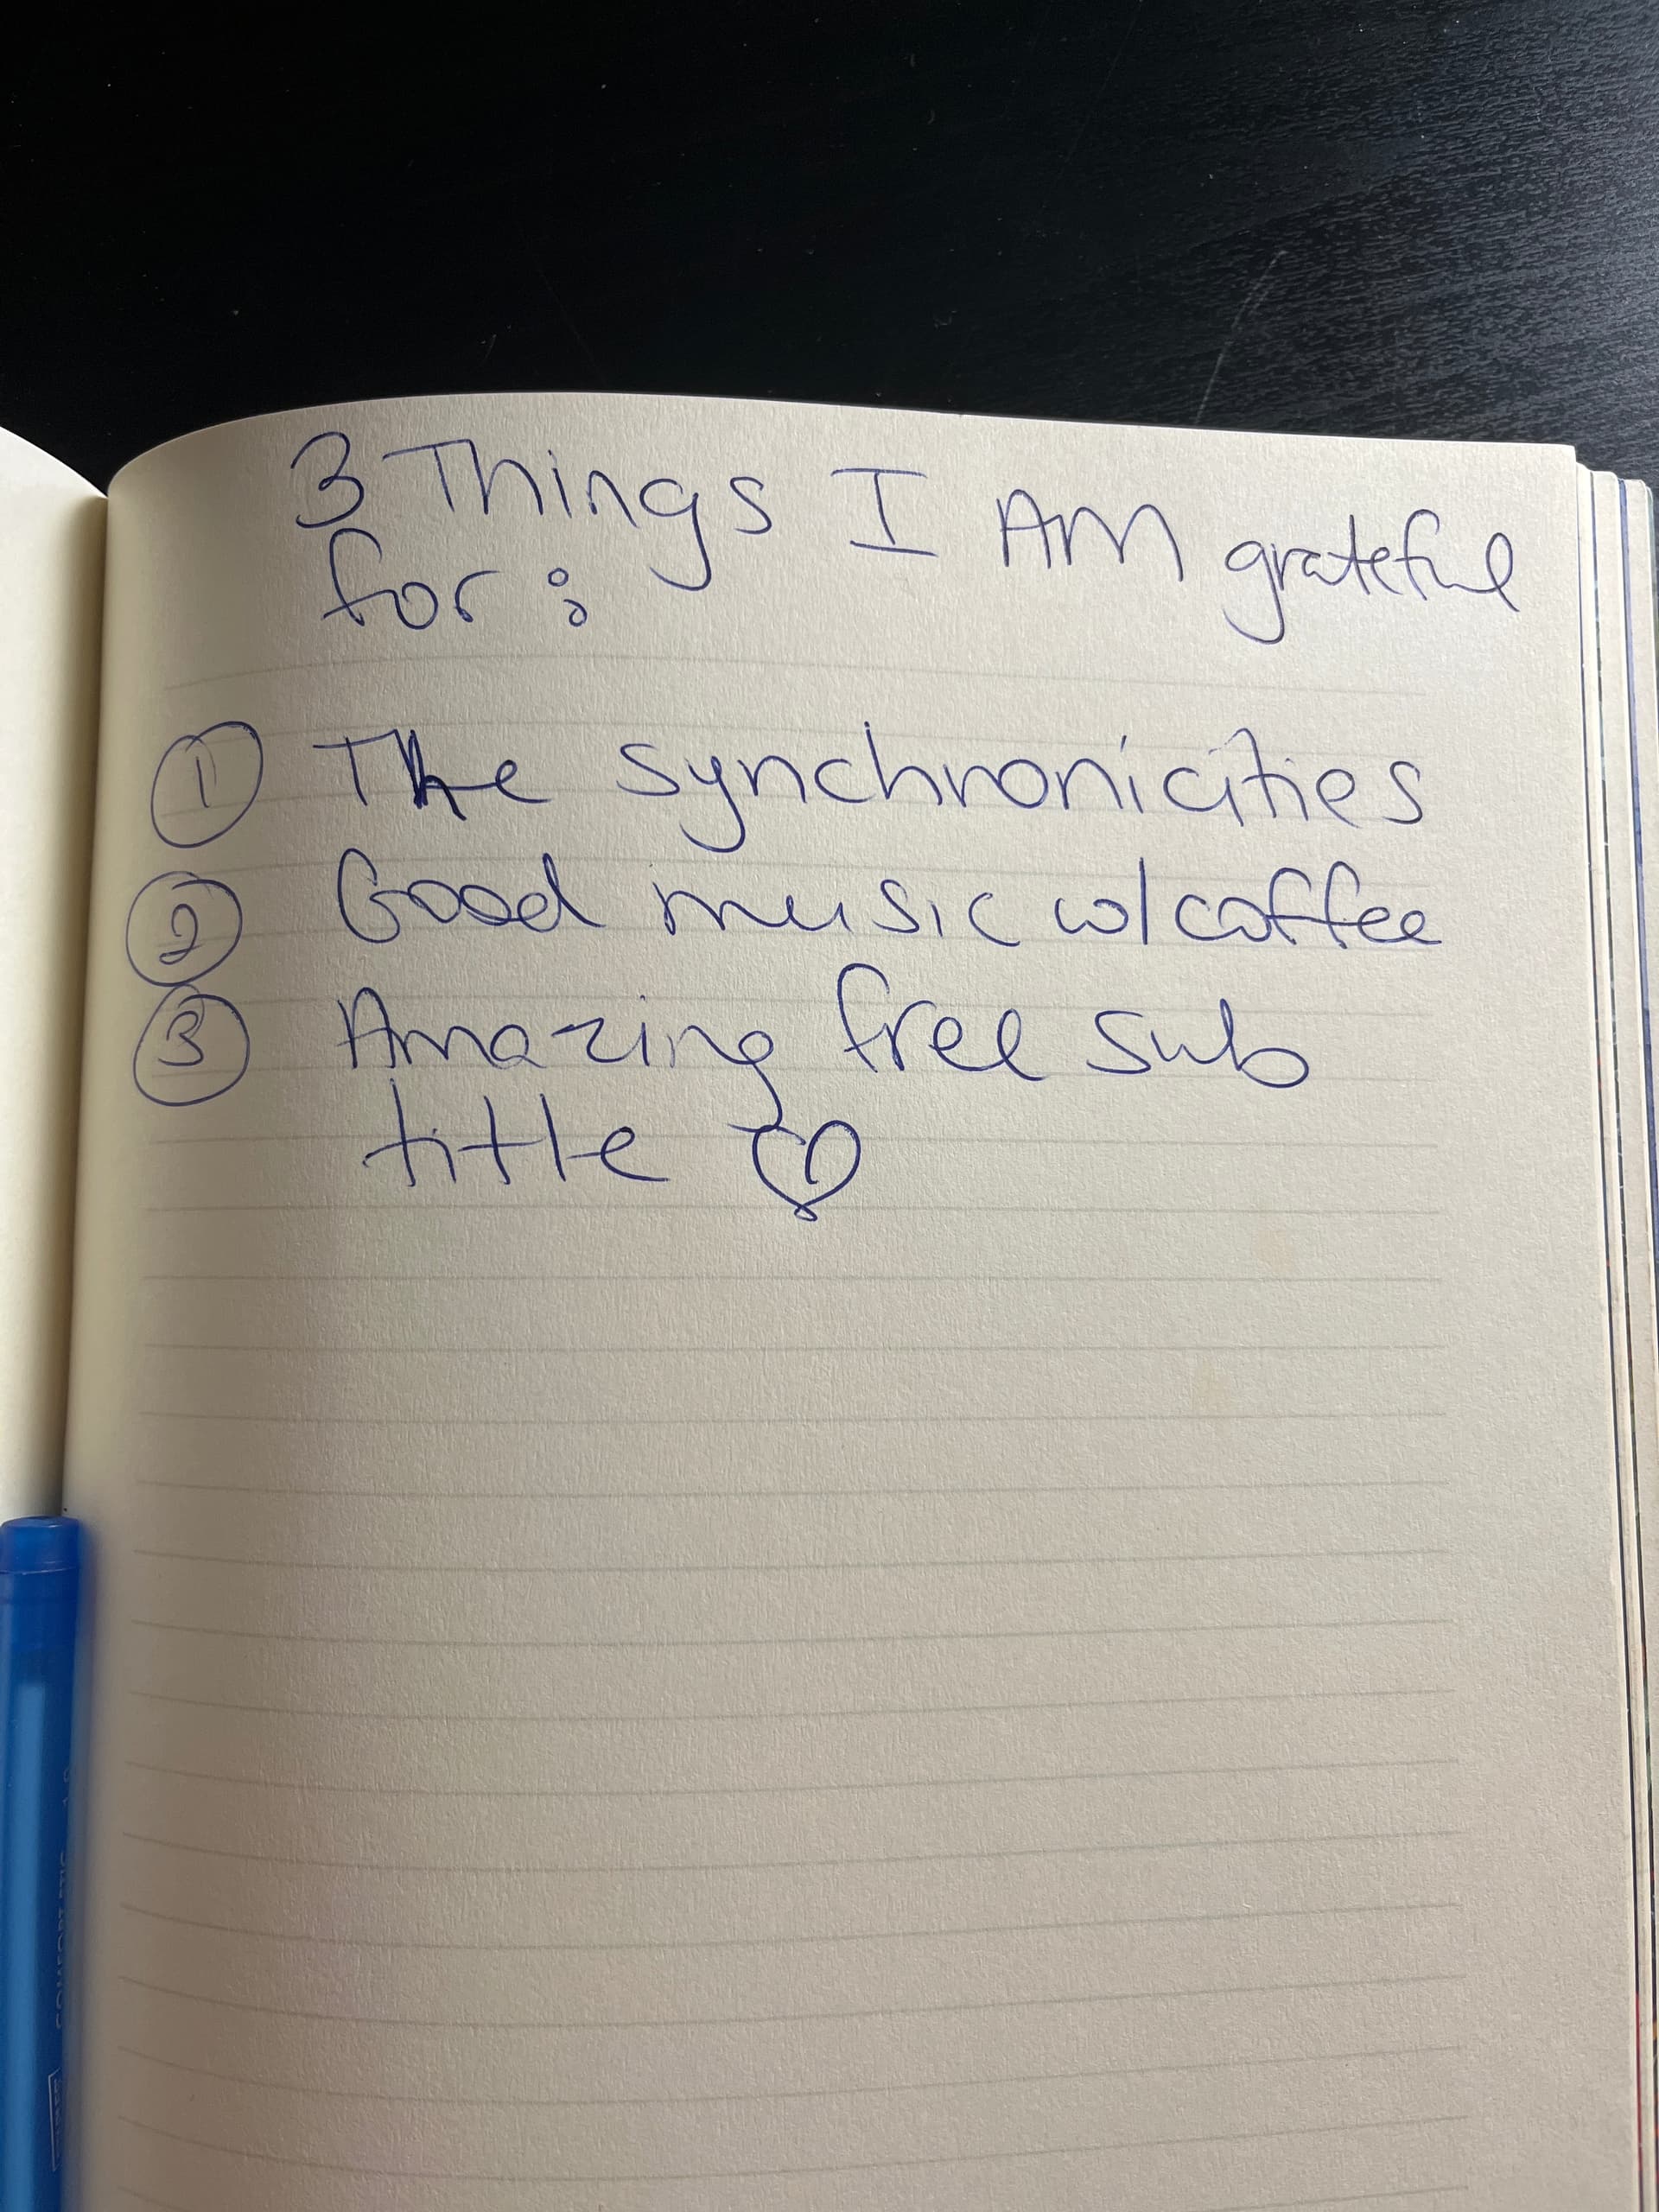 3 Things I AM grateful
for:
① The synchronicities
② Good music w/coffee
③ Amazing free sub
title ♡